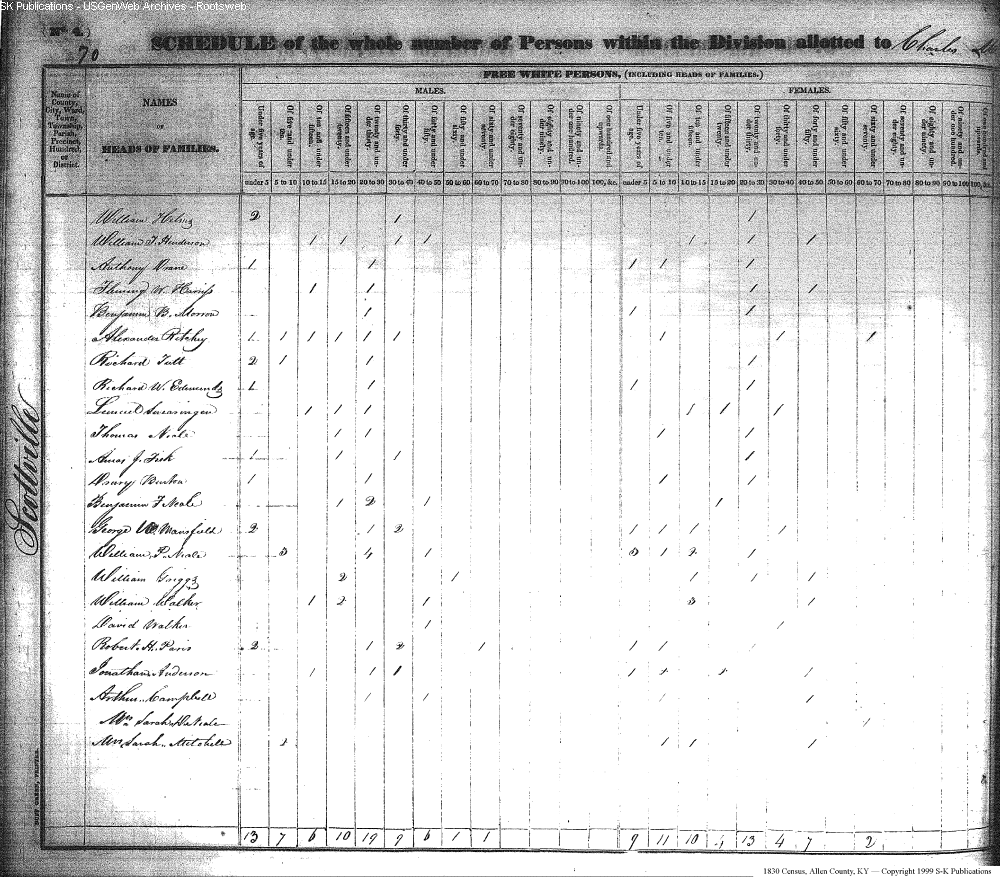 SK Publications - USGenWeb Archives - Rootsweb
No 4.)
70
SCHEDULE of the whole number of Persons within the Division allotted to Charles
FREE WHITE PERSONS, (INCLUDING HEADS OF FAMILIES.)
MALES. FEMALES.
Name of County, City, Ward, Town, Township, Parish, Precinct, Hundred, or District.
NAMES
OF
HEADS OF FAMILIES.
Under five years of age. Of five and under ten. Of ten and under fifteen. Of fifteen and under twenty. Of twenty and under thirty. Of thirty and under forty. Of forty and under fifty. Of fifty and under sixty. Of sixty and under seventy. Of seventy and under eighty. Of eighty and under ninety. Of ninety and under one hundred. Of one hundred and upwards. Under five years of age. Of five and under ten. Of ten and under fifteen. Of fifteen and under twenty. Of twenty and under thirty. Of thirty and under forty. Of forty and under fifty. Of fifty and under sixty. Of sixty and under seventy. Of seventy and under eighty. Of eighty and under ninety. Of ninety and under one hundred. Of one hundred and upwards.
under 5 5 to 10 10 to 15 15 to 20 20 to 30 30 to 40 40 to 50 50 to 60 60 to 70 70 to 80 80 to 90 90 to 100 100, &c. under 5 5 to 10 10 to 15 15 to 20 20 to 30 30 to 40 40 to 50 50 to 60 60 to 70 70 to 80 80 to 90 90 to 100 100, &c.
Scottville
William 2 1 1
William T. Henderson 1 1 1 1 1 1 1
Anthony Drane 1 1 1 1 1
Fleming W. Harriss 1 1 1 1
Benjamin B. Morrow 1 1 1
Alexander Ritchey 1 1 1 1 1 1 1 1 1
Richard Tutt 2 1 1 1
Richard W. Edmunds 1 1 1 1
Lemuel Swearingen 1 1 1 1 1 1
Thomas Neale 1 1 1 1
Amos J. Fisk 1 1 1 1
Drury Burton 1 1 1 1
Benjamin F Neale 1 2 1 1
George W Mansfield 2 1 2 1 1 1 1
William P. Neale 3 4 1 3 1 2 1
William Griggs 2 1 1 1 1
William Walker 1 2 1 3 1
David Walker 1 1
Robert H. Paris 2 1 2 1 1 1
Jonathan Anderson 1 1 1 1 1 1 1
Arthur Campbell 1 1 1 1
Mrs Sarah Neale 1
Mrs Sarah Mitchell 1 1 1 1
13 7 6 10 19 9 6 1 1 9 11 10 4 13 4 7 2
1830 Census, Allen County, KY — Copyright 1999 S-K Publications